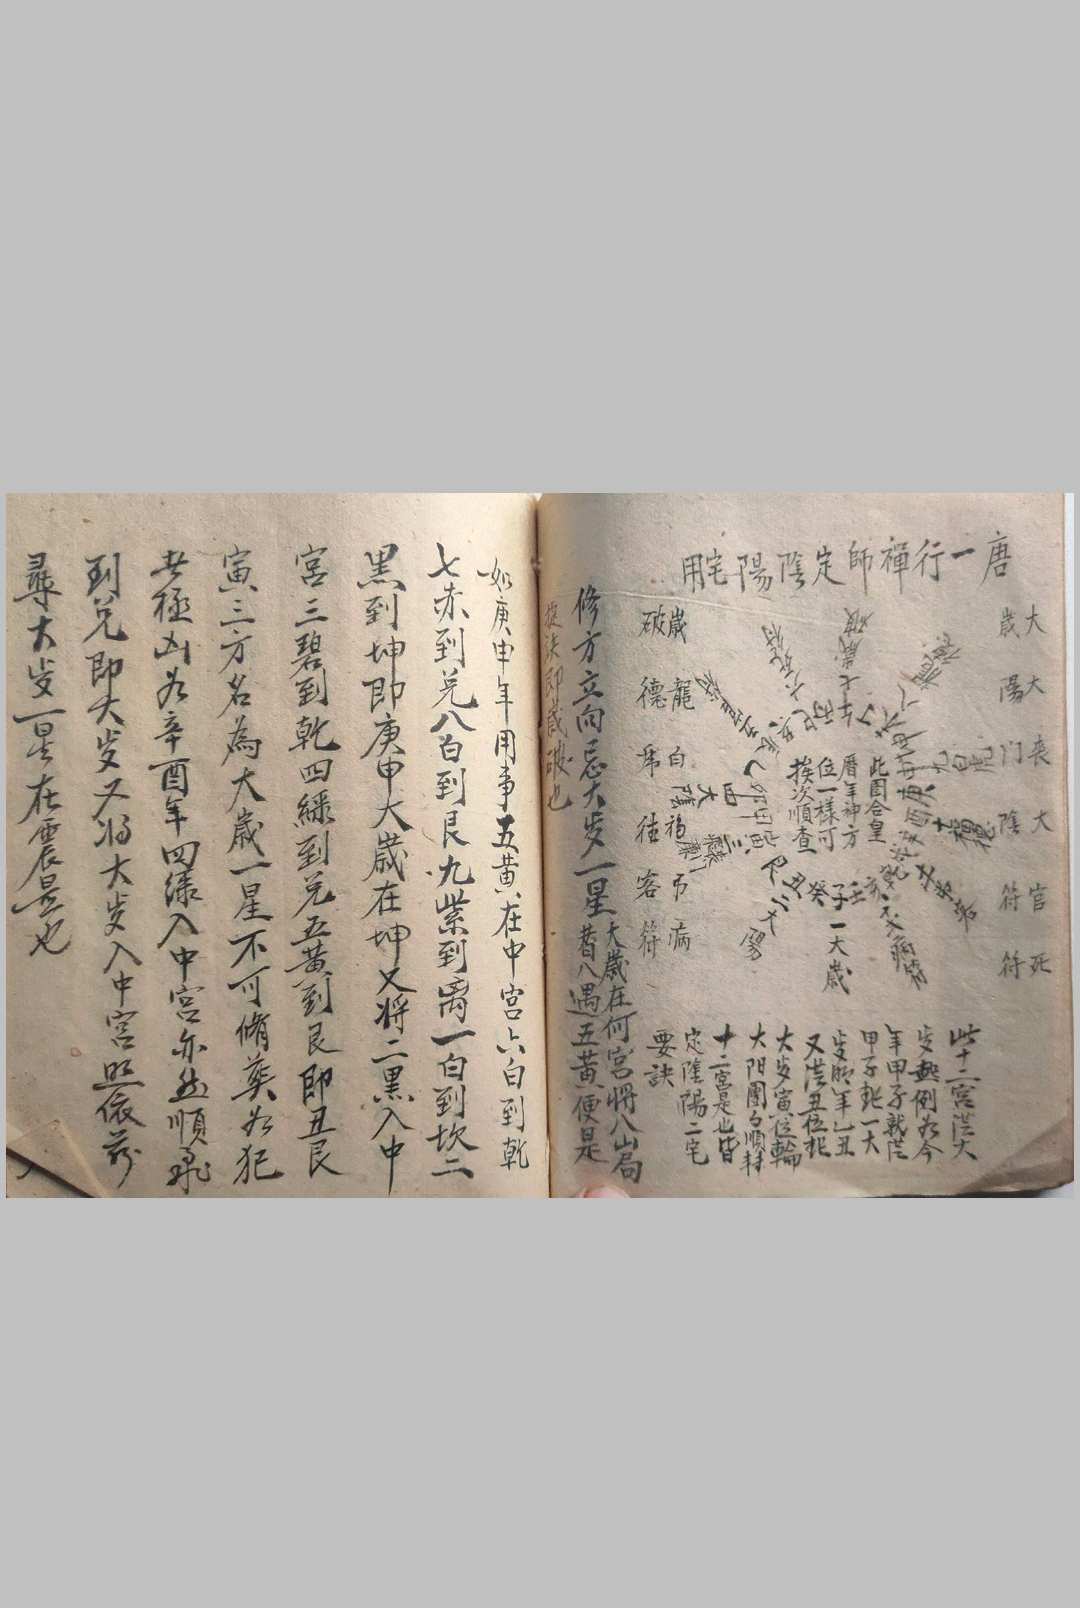 唐一行禪師定陰陽宅用
大歲
大陽
喪门
大陰
官符
死符
歲破
龍德
白虎
福德
吊客
病符
此圖合皇
曆年神方
位一樣可
挨次順查
子一大歲
此十二宮從大
歲起例如今
年甲子就從
甲子起一大
歲明年乙丑
又從丑位起
大歲寅位輪
大陽團台順轉
十二宮是也皆
定陰陽二宅
要訣
修方立向忌大歲一星
大歲在何宮將八山局
昔八遇五黃便是
掟法即歲破也
如庚申年用事五黃在中宮六白到乾
七赤到兑八白到艮九紫到离一白到坎二
黑到坤即庚申大歲在坤又将二黑入中
宮三碧到乾四緑到兑五黃到艮即丑艮
寅三方名為大歲一星不可脩葬如犯
者極凶如辛酉年四緑入中宮亦然順飛
到兑即大歲又將大歲入中宮照依前
尋大歲一星在震是也